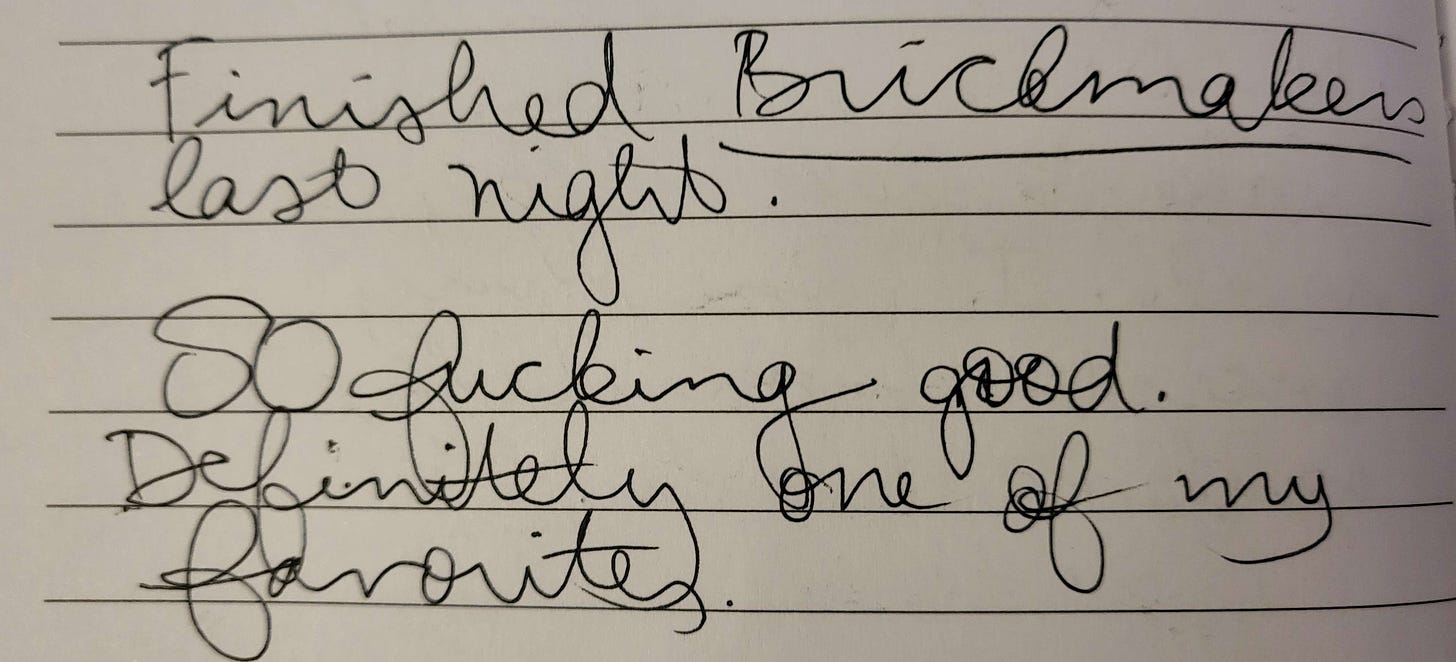 Finished Brickmakers
last night.
SO fucking good.
Definitely one of my
favorites.